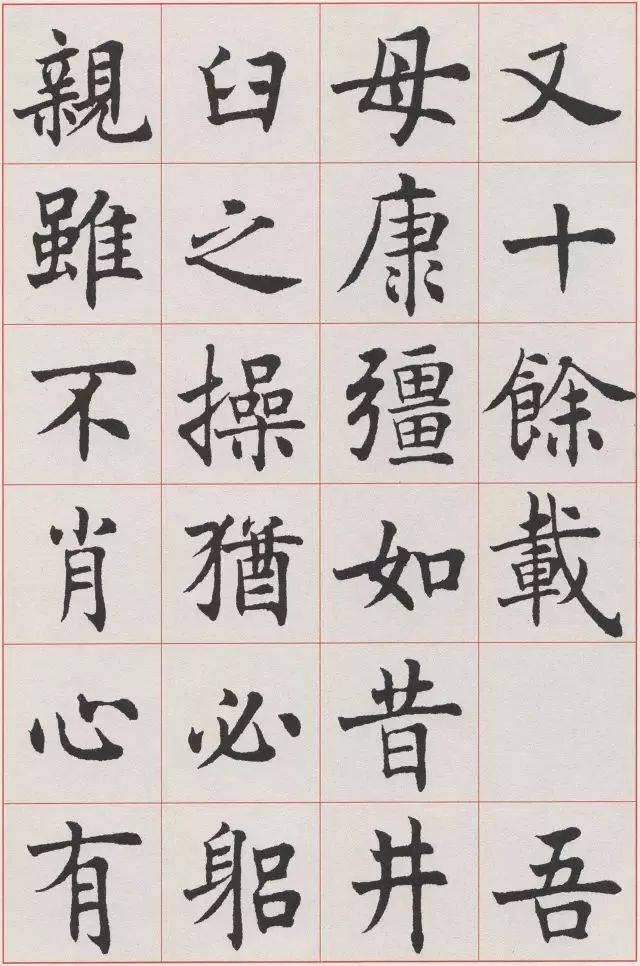 又十餘載 吾
母康彊如昔井
臼之操猶必躬
親雖不肖心有